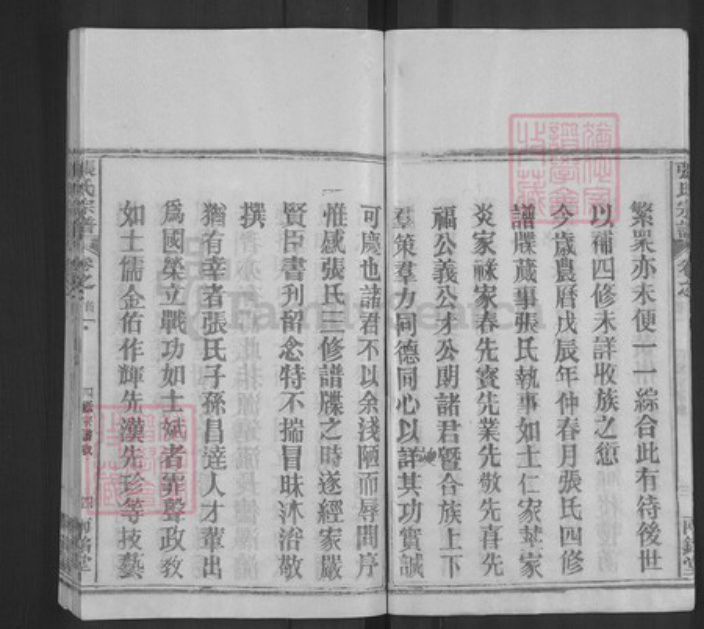 繁眾亦未便一一綜合此有待後世
以補四修未詳收族之愆
今歲農曆戊辰年仲春月張氏四修
譜牒蕆事張氏執事如士仁家基家
炎家祿家春先賓先業先敬先喜先
福公義公才公朗諸君暨合族上下
羣策羣力同德同心以詳其功實誠
可慶也諸君不以余淺陋而辱問序
惟感張氏三修譜牒之時遂經家嚴
賢臣書刋留念特不揣冒昧沐浴敬
撰
猶有幸者張氏子孫昌達人才輩出
爲國榮立戰功如士斌者葬聲政敎
如士儒金佑作輝先漢先珍等技藝
張氏宗譜
卷之首
四
兩銘堂
張氏宗譜
卷之
兩銘堂
FamilySearch